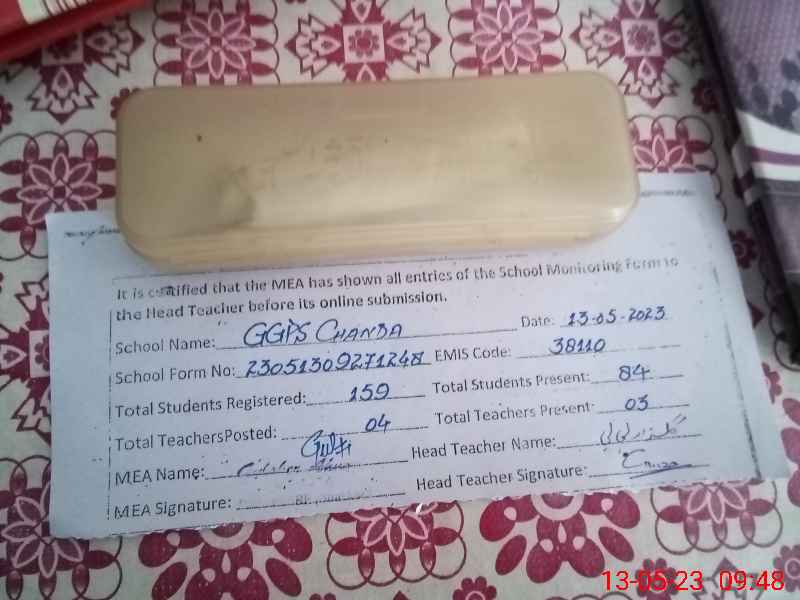 It is certified that the MEA has shown all entries of the School Monitoring Form to
the Head Teacher before its online submission.
School Name: GGPS CHANDA Date: 13-05-2023
School Form No: 23051309271248 EMIS Code: 38110
Total Students Registered: 159 Total Students Present: 84
Total TeachersPosted: 04 Total Teachers Present: 03
MEA Name: Head Teacher Name:
MEA Signature: Head Teacher Signature:
13-05-23 09:48